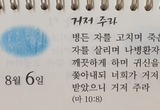 거저 주라
병든 자를 고치며 죽은
자를 살리며 나병환자
깨끗하게 하며 귀신을
쫓아내되 너희가 거저
받았으니 거저 주라
(마 10:8)
8월 6일